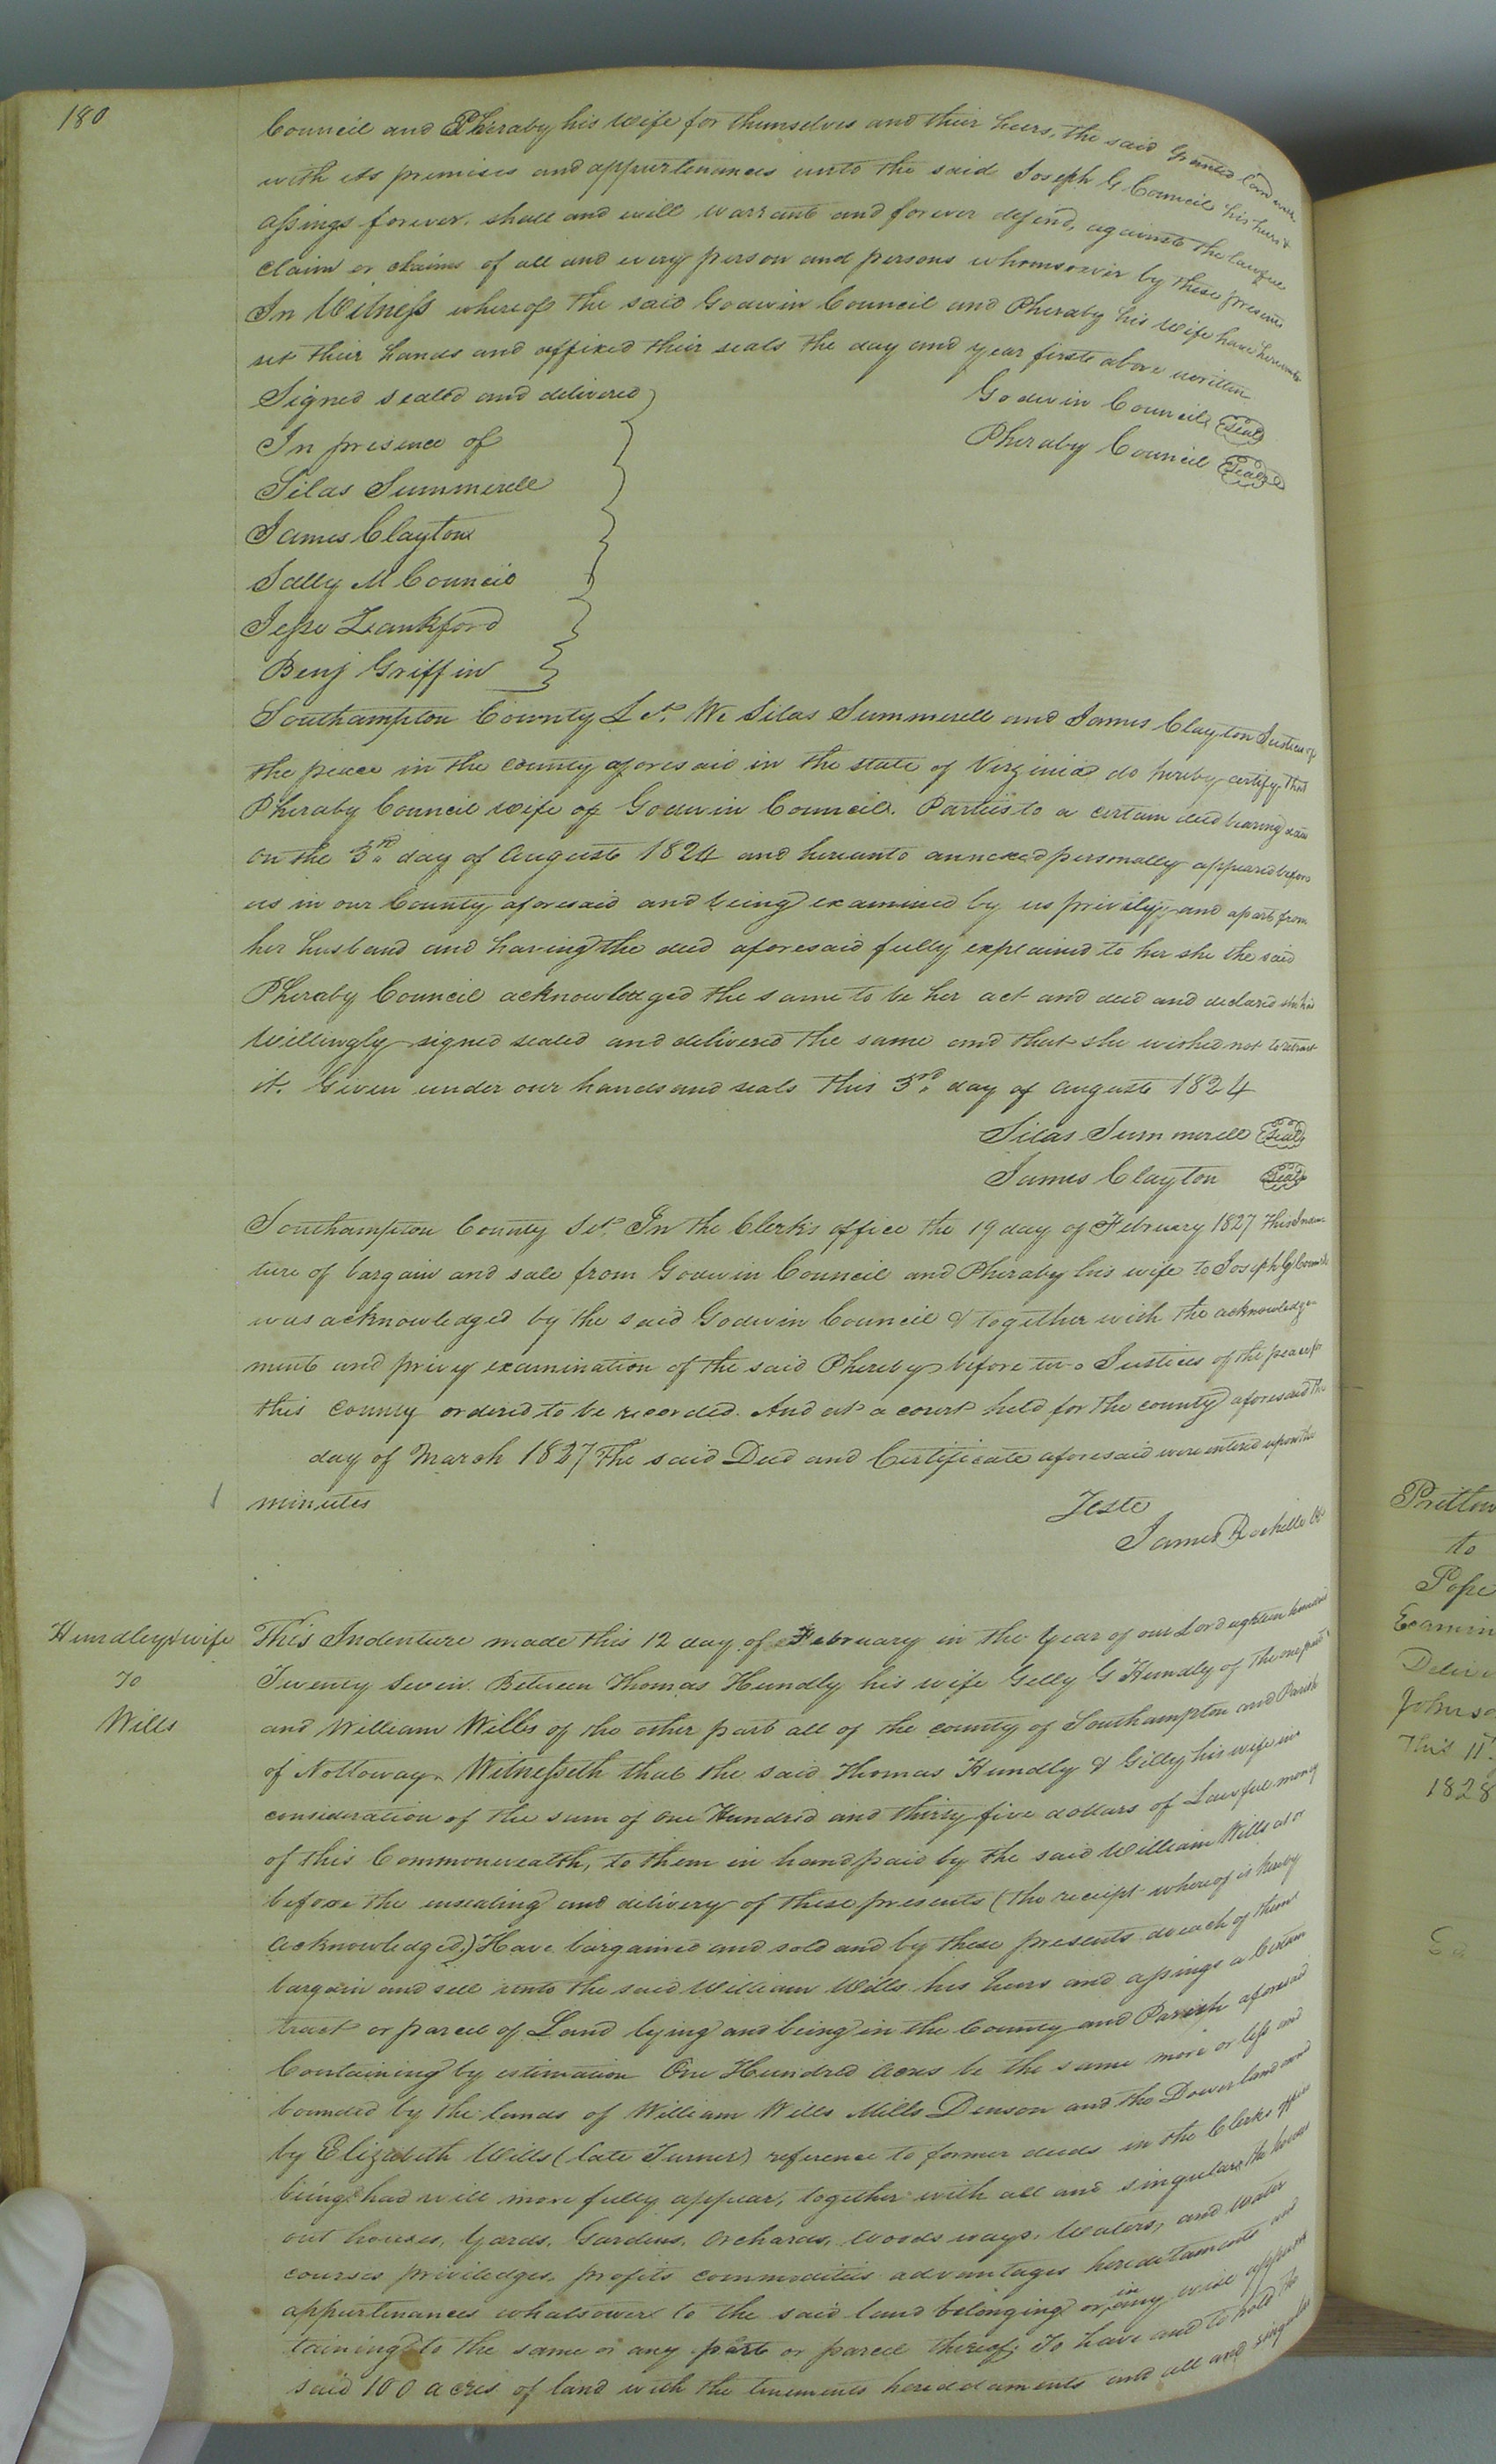 180
Council and Pheraby his wife for themselves and their heirs, the said Granted land
with its premises and appurtenances unto the said Joseph G Council his heirs &
assings forever. shall and will warrant and forever defend, against the lawfull
claim or claims of all and every person and persons whomsoever by these presents
In Witness whereof the said Godwin Council and Pheraby his wife have hereunto
set their hands and affixed their seals the day and year firste above written
Signed sealed and delivered
Godwin Council Seal
In presence of
Pheraby Council Seal
Silas Summerell
James Clayton
Sally M Council
Jesse Lankford
Benj Griffin
Southampton County Sct. We Silas Summerell and James Clayton Justices of
the peace in the county aforesaid in the state of Virginia do hereby certify that
Pheraby Council wife of Godwin Council. Parties to a certain deed bearing date
on the 3rd day of Auguste 1824 and hereunto annexed personally appeared before
us in our County aforesaid and being examined by us privily and apart from
her husband and having the deed aforesaid fully explained to her she the said
Pheraby Council acknowledged the same to be her act and deed and declared she had
Willingly signed sealed and delivered the same and that she wished not to retract
it. Given under our hands and seals this 3rd day of Auguste 1824
Silas Summerell Seal
James Clayton Seal
Southampton County Sct. In the Clerks office the 19 day of February 1827 This Inden
ture of bargain and sale from Godwin Council and Pheraby his wife to Joseph G Council
was acknowledged by the said Godwin Council & together with the acknowledge
ment and privy examination of the said Phereby before two Justices of the peace for
this County ordered to be recorded. And at a court held for the county aforesaid the
day of March 1827 The said Deed and Certificate aforesaid were entered upon the
minutes
Teste
James Rochelle
Hundley & wife
To
Wills
This Indenture made this 12 day of February in the Year of our Lord eighteen hundred
Twenty Seven. Between Thomas Hundly his wife Gelly G Hundly of the one part
and William Wills of the other part all of the county of Southampton and Parish
of Nottoway. Witnesseth that the said Thomas Hundly & Gilley his wife in
consideration of the sum of One Hundred and thirty five dollars of Lawful mony
of this Commonwealth, to them in hand paid by the said William Wills at or
before the ensealing and delivery of these presents (the receipt whereof is hereby
acknowledged,) Have bargained and sold and by these presents do each of them
bargain and sell unto the said William Wills his heirs and assings a Certain
tract or parcel of Land lying and being in the County and Parish aforesaid
Containing by estimation One Hundred Acres be the same more or less and
bounded by the lands of William Wills Mills Denson and the Dower land ownd
by Elizabeth Wills (late Turner) reference to former deeds in the Clerks office
being had will more fully appear, together with all and singular, the houses
out houses, Yards, Gardens, Orchards, woods ways, Waters, and Water
courses priviledges, profits commodities advantages hereditaments and
appurtenances whatsoever to the said land belonging or, in any wise apper
taining to the same or any parte or parcel thereof; To have and to hold the
said 100 acres of land with the tenements hereddaments and all and singular
to
Pope
Examin
1828